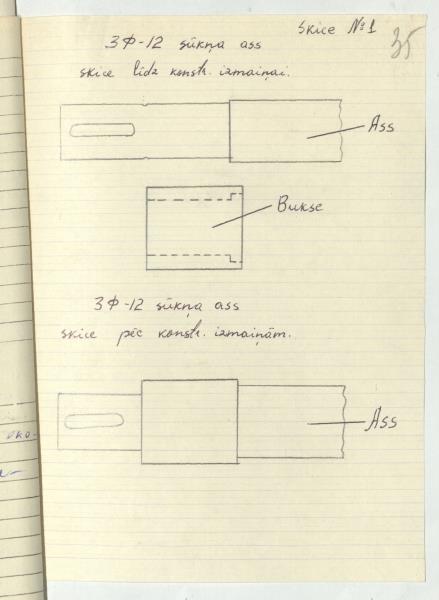 Skice №1
35
3Ф-12 sūkņa ass
skice līdz konstr. izmaiņai.
Ass
Bukse
3Ф-12 sūkņa ass
skice pēc konstr. izmaiņām.
Ass